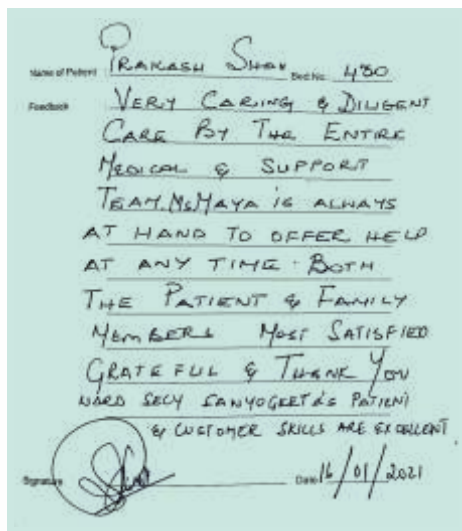 Name of Patient PRAKASH SHAH Bed No. 480
Feedback VERY CARING & DILIGENT
CARE BY THE ENTIRE
MEDICAL & SUPPORT
TEAM. Ms MAYA IS ALWAYS
AT HAND TO OFFER HELP
AT ANY TIME. BOTH
THE PATIENT & FAMILY
MEMBERS MOST SATISFIED
GRATEFUL & THANK YOU
WARD SECY SANYOGEETA'S PATIENT
& CUSTOMER SKILLS ARE EXCELLENT.
Signature Date 16/01/2021